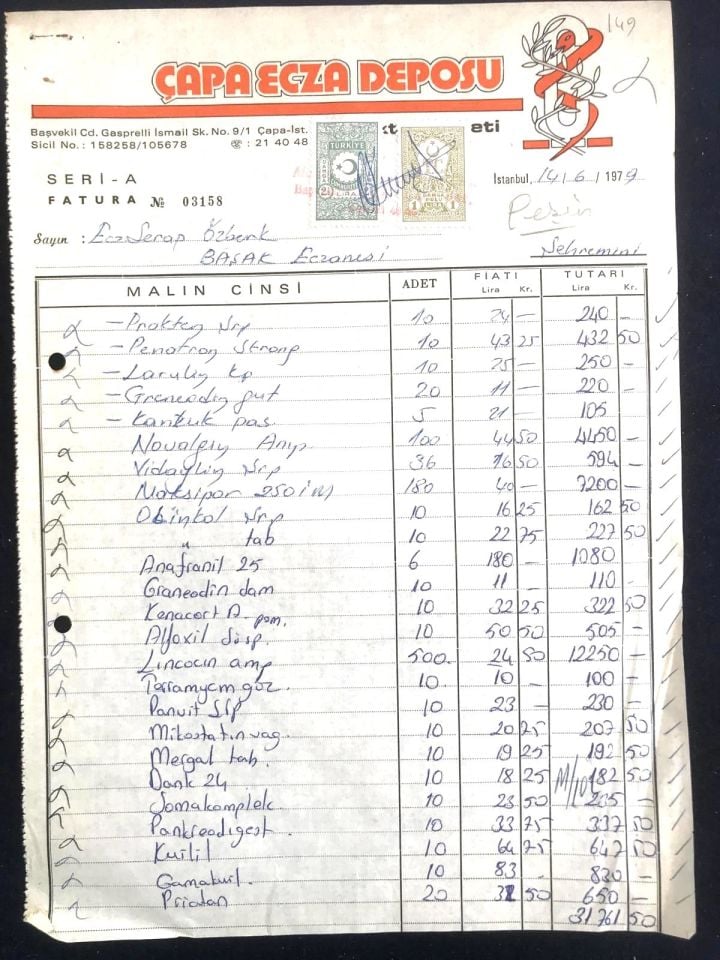 149
ÇAPA ECZA DEPOSU
Başvekil Cd. Gasprelli İsmail Sk. No. 9/1 Çapa-İst.
Sicil No. : 158258/105678 ☎ : 21 40 48
eti
TÜRKİYE
LİRA
1 1
SERİ-A
FATURA № 03158
İstanbul, 14/6/1979
Peşin
Sayın : Ecz Serap Özberk
BAŞAK Eczanesi
Şehremini
MALIN CİNSİ ADET FİATI TUTARI
Lira Kr. Lira Kr.
10 24 — 240 —
- Penotran Strong 10 43 25 432 50
10 25 — 250 —
20 11 — 220 —
5 21 — 105
Novalgin Amp 100 44 50 4450 —
Vidaylin Srp 36 16 50 594 —
Maksipor 250 im 180 40 — 7200 —
Srp 10 16 25 162 50
" tab 10 22 75 227 50
Anafranil 25 6 180 — 1080
Graneodin dam 10 11 — 110 —
Kenacort A. pom. 10 32 25 322 50
Alfoxil Süsp. 10 50 50 505 —
Lincocin amp 500. 24 50 12250 —
Terramycin göz. 10 10 — 100 —
Panvit Srp 10 23 — 230 —
Mikostatin vag. 10 20 25 207 50
Mergal tab. 10 19 25 192 50
Dank 24 10 18 25 182 50
Somakomplek. 10 23 50 235 —
Pankreodigest. 10 33 75 337 50
10 64 75 647 50
10 83 — 830 —
20 32 50 650 —
31761 50